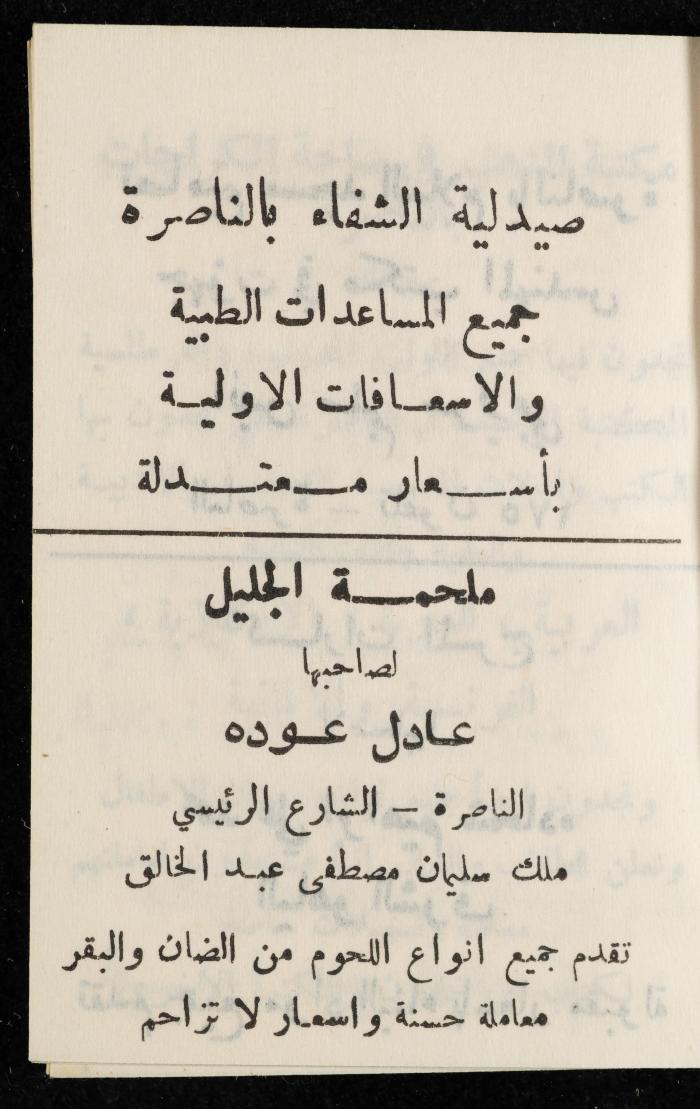 صيدلية الشفاء بالناصرة
جميع المساعدات الطبية
والاسعافات الاولية
بأسعار معتدلة
ملحمة الجليل
لصاحبها
عادل عوده
الناصرة – الشارع الرئيسي
ملك سليمان مصطفى عبد الخالق
تقدم جميع انواع اللحوم من الضان والبقر
معاملة حسنة واسعار لا تزاحم